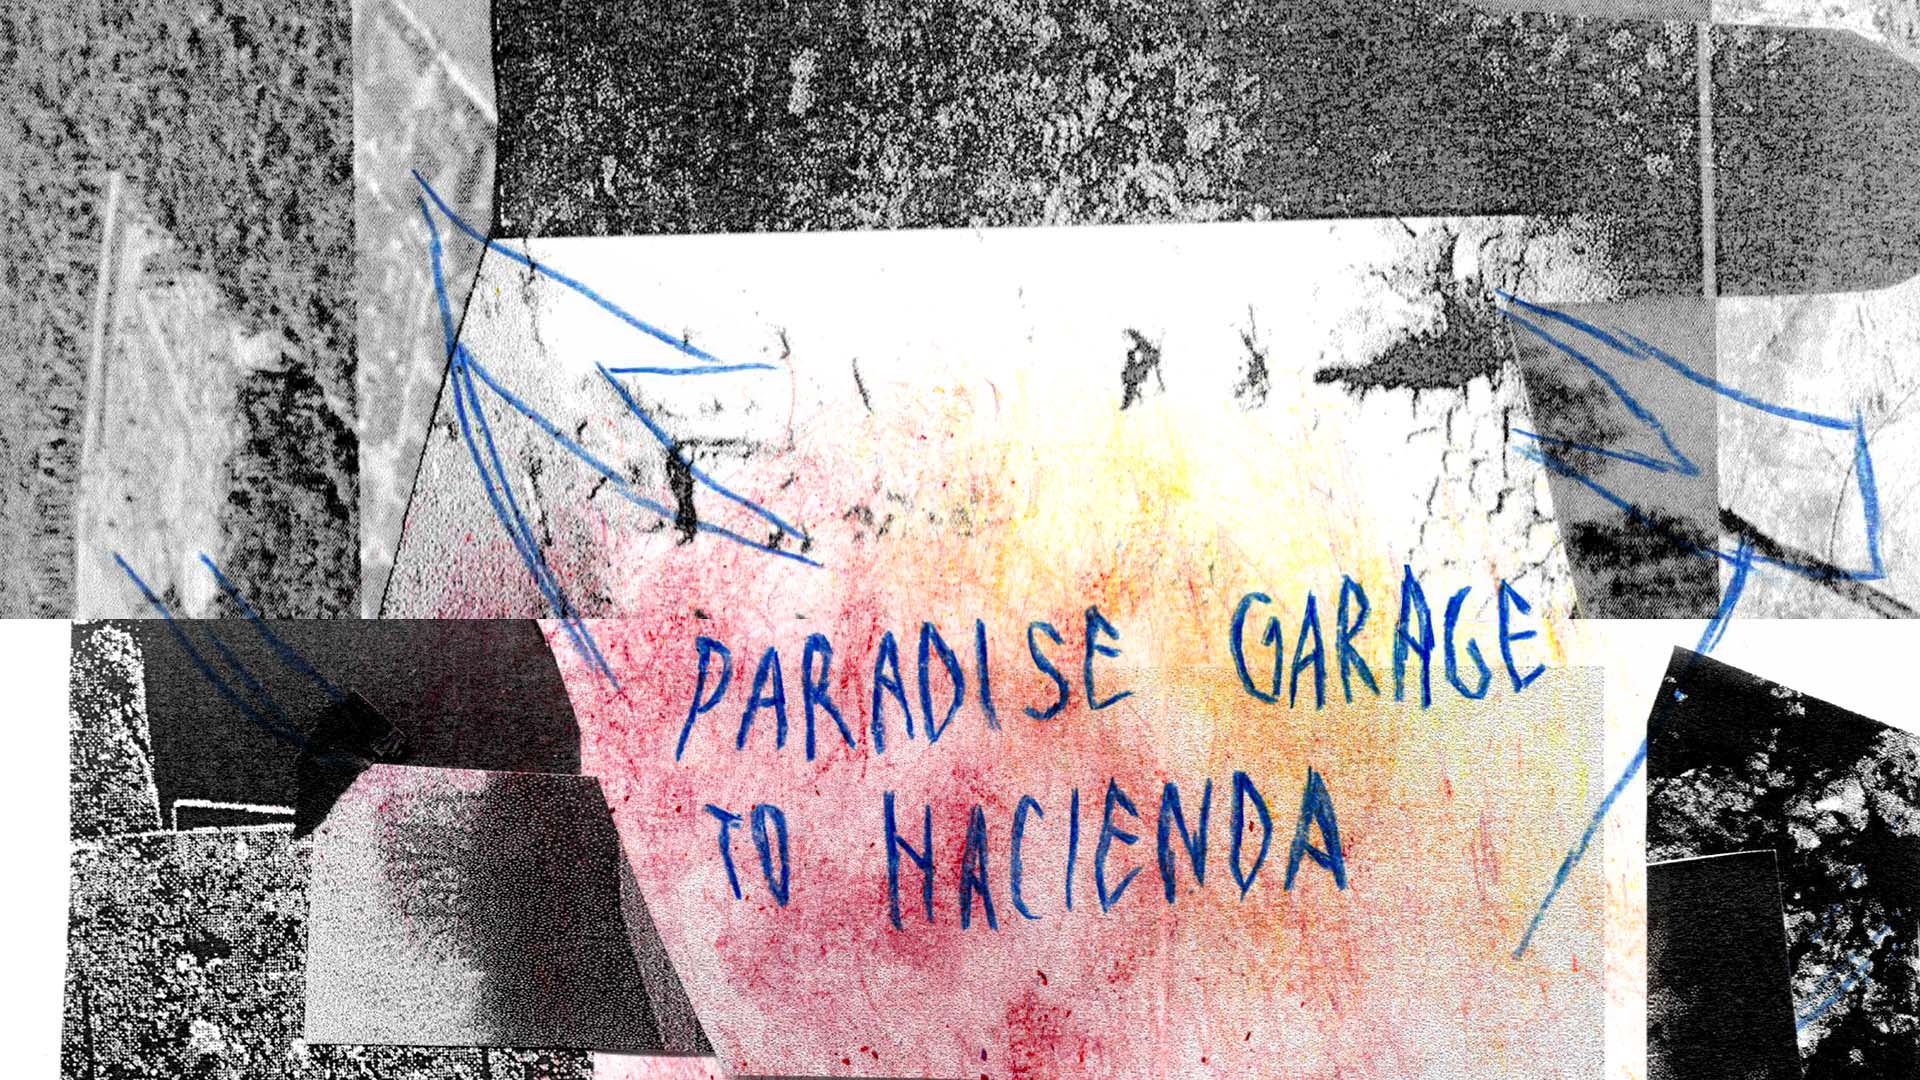 PARADISE GARAGE
TO HACIENDA